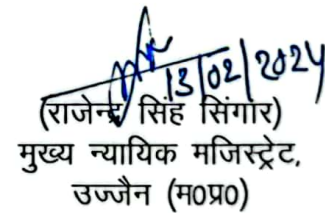 13/02/2024
(राजेन्द्र सिंह सिंगार)
मुख्य न्यायिक मजिस्ट्रेट,
उज्जैन (म0प्र0)